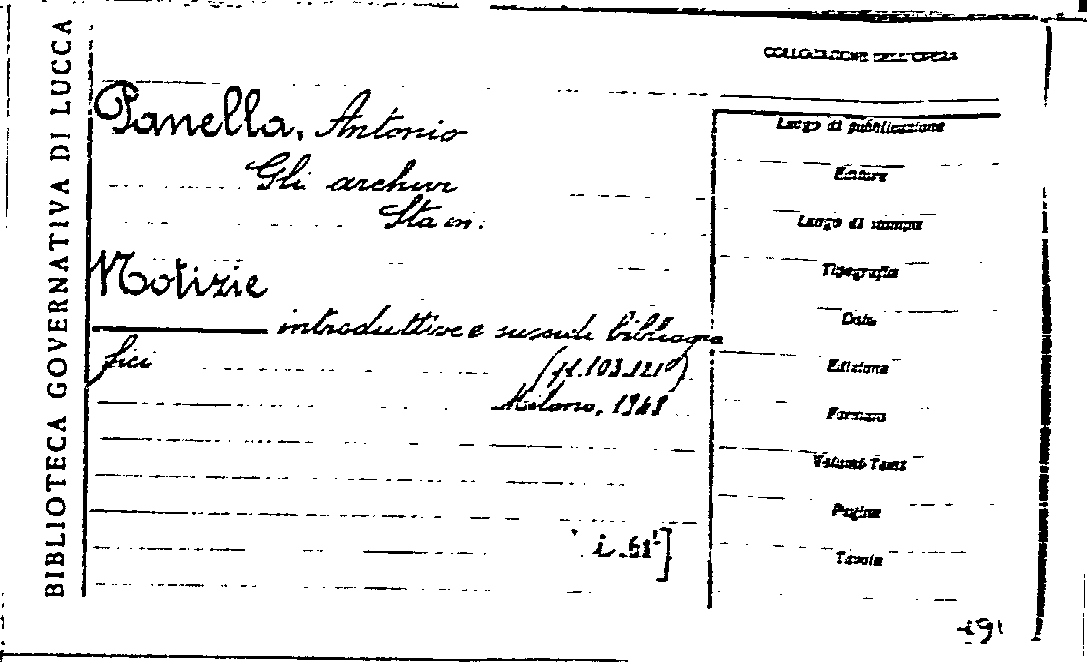 BIBLIOTECA GOVERNATIVA DI LUCCA
COLLOCAZIONE DELL'OPERA
Panella, Antonio
Gli archivi
Sta in:
Notizie
introduttive e sussidi bibliogra
fici (p. 103-121)
Milano, 1948
Luogo di pubblicazione
Editore
Luogo di stampa
Tipografia
Data
Edizione
Formato
Volumi-Tomi
Pagine
Tavole